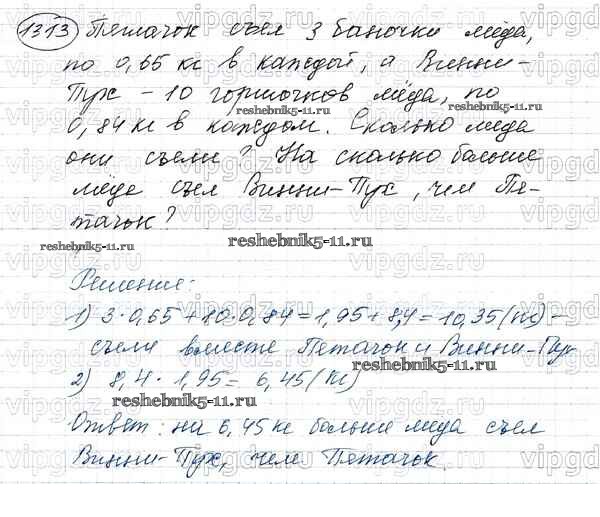 1313 Пятачок съел 3 баночки мёда,
по 0,65 кг в каждой, а Винни-
Пух - 10 горшочков мёда, по
reshebnik5-11.ru
reshebnik5-11.ru
0,84 кг в каждом. Сколько меда
они съели? На сколько больше
мёда съел Винни-Пух, чем Пя-
тачок?
reshebnik5-11.ru
reshebnik5-11.ru
Решение:
1) 3·0,65+10·0,84=1,95+8,4=10,35 (кг) -
reshebnik5-11.ru
съели вместе Пятачок и Винни-Пух
2) 8,4 · 1,95 = 6,45 (кг)
reshebnik5-11.ru
Ответ: на 6,45 кг больше меда съел
Винни-Пух, чем Пятачок.
vipgdz.ru